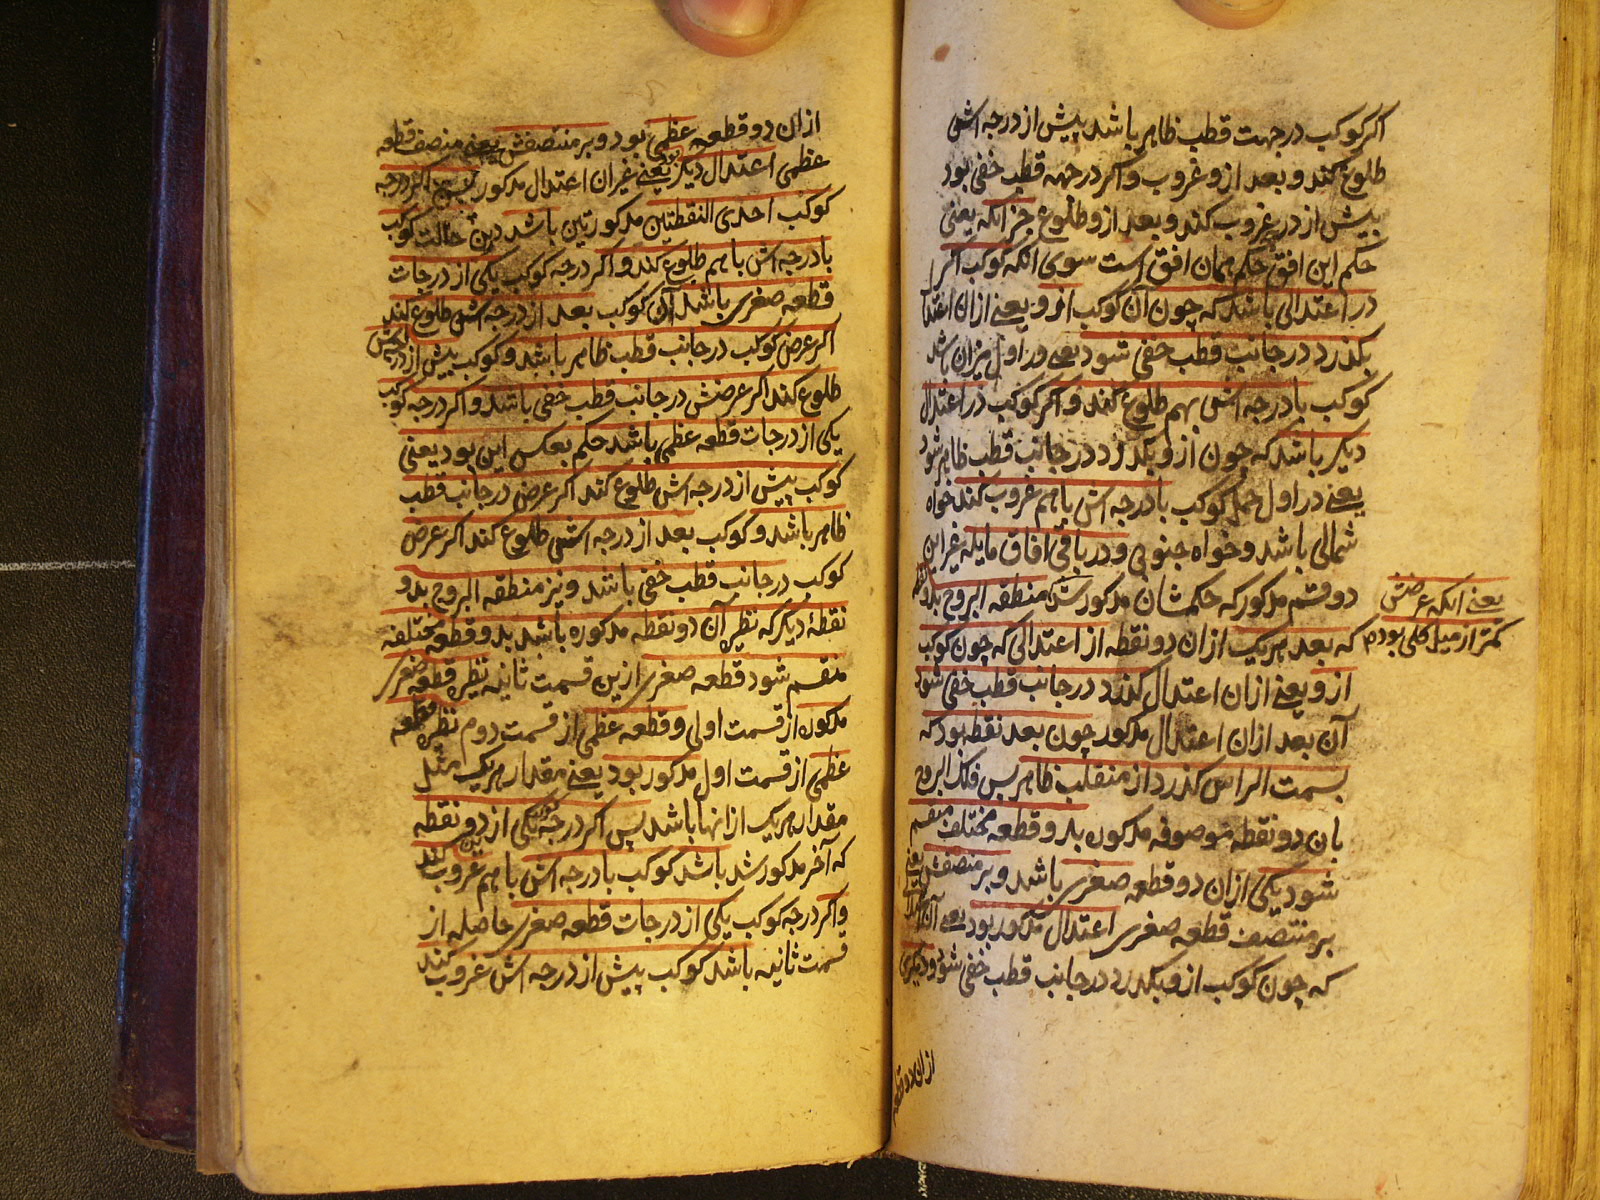 اکر کوکب در جهت قطب ظاهر باشد پیش از درجه اش
طلوع کند و بعد از و غروب و اکر در جهه قطب خفی بود
پیش از در غروب کند و بعد از و طلوع جز انکه یعنی
حکم این افق حکم همان افق است سوی انکه کوکب اکر
در اعتدالی باشد که چون آن کوکب از و یعنی از ان اعتدا
بکذرد در جانب قطب خفی شود یعنی در اول میزان باشد
کوکب با درجه اش بهم طلوع کند و اکر کوکب در اعتدال
دیکر باشد که چون از و بکذرد در جانب قطب ظاهر شود
یعنی در اول حمل کوکب با درجه اش باهم غروب کند خواه
شمالی باشد و خواه جنوبی و در باقی افاق مایله غیر این
دو قسم مذکور که حکمشان مذکور شد منطقه البروج بدو نقطه
یعنی انکه عرضش
کمتر از میل کلی بود
که بعد هریک از ان دو نقطه از اعتدالی که چون کوکب
از و یعنی از ان اعتدال بکذرد در جانب قطب خفی شود
آن بعد از ان اعتدال مذکور چون بعد نقطه بود که
بسمت الراس کذرد از منقلب ظاهر پس فلک البروج
بان دو نقطه موصوفه مذکوره بدو قطعه مختلف منقسم
شود یکی از ان دو قطعه صغری باشد و بر منتصفش یعنی
بر منتصف قطعه صغری اعتدال مذکور بود یعنی آن اعتدال
که چون کوکب از و بکذرد در جانب قطب خفی شود و دیکری
از ان دو قطعه
از ان دو قطعه عظمی بود و بر منتصفش یعنی منصف قطعه
عظمی اعتدال دیکر بود یعنی غیر ان اعتدال مذکور پس اکر درجه
کوکب احدی النقطتین مذکورتین باشد درین حالت کوکب
با درجه اش باهم طلوع کند و اکر درجه کوکب یکی از درجات
قطعه صغری باشد آن کوکب بعد از درجه اش طلوع کند
اکر عرض کوکب در جانب قطب ظاهر باشد و کوکب پیش از درجه اش
طلوع کند اکر عرضش در جانب قطب خفی باشد و اکر درجه کوکب
یکی از درجات قطعه عظمی باشد حکم بعکس این بود یعنی
کوکب پیش از درجه اش طلوع کند اکر عرض در جانب قطب
ظاهر باشد و کوکب بعد از درجه اش طلوع کند اکر عرض
کوکب در جانب قطب خفی باشد و نیز منطقه البروج بدو
نقطهٔ دیکر که نظیر آن دو نقطه مذکوره باشد بدو قطعه مختلفه
منقسم شود قطعه صغری ازین قسمت ثانیه نظیر قطعه صغری
مذکوره از قسمت اولی و قطعه عظمی از قسمت دوم نظیر قطعه
عظمی از قسمت اول مذکور بود یعنی مقدار هریک مثل
مقدار هریک از انها باشد پس اکر درجه کوکب یکی از دو نقطه
که آخر مذکور شد باشد کوکب با درجه اش باهم غروب کند
و اکر درجه کوکب یکی از درجات قطعه صغری حاصله از
قسمت ثانیه باشد کوکب پیش از درجه اش غروب کند